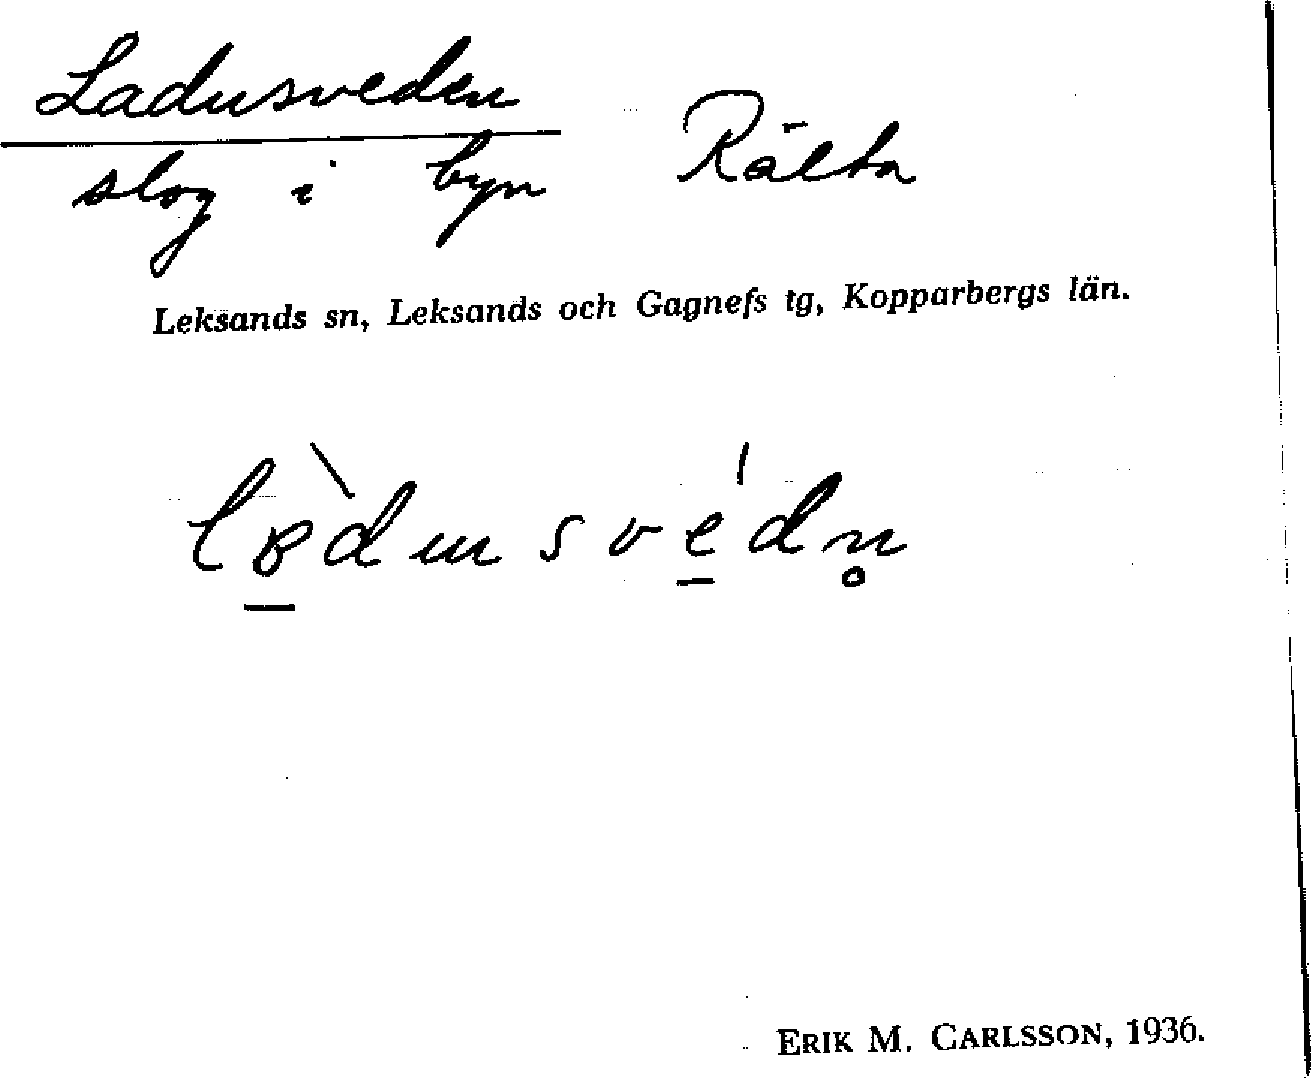 Ladusveden
slog i byn Rälta
Leksands sn, Leksands och Gagnefs tg, Kopparbergs län.
ERIK M. CARLSSON, 1936.